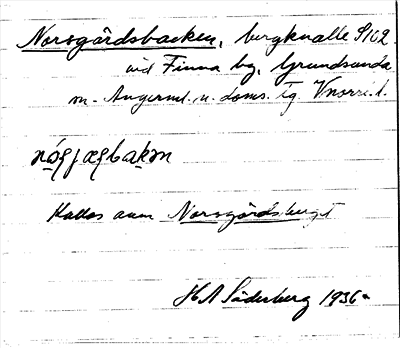 Norsgårdsbacken, bergknalle S162
vid Finna by, Grundsunda
sn. Ångerml. n. doms. tg V.norrl. l.
Kallas även Norsgårdsberget
H A Söderberg 1936